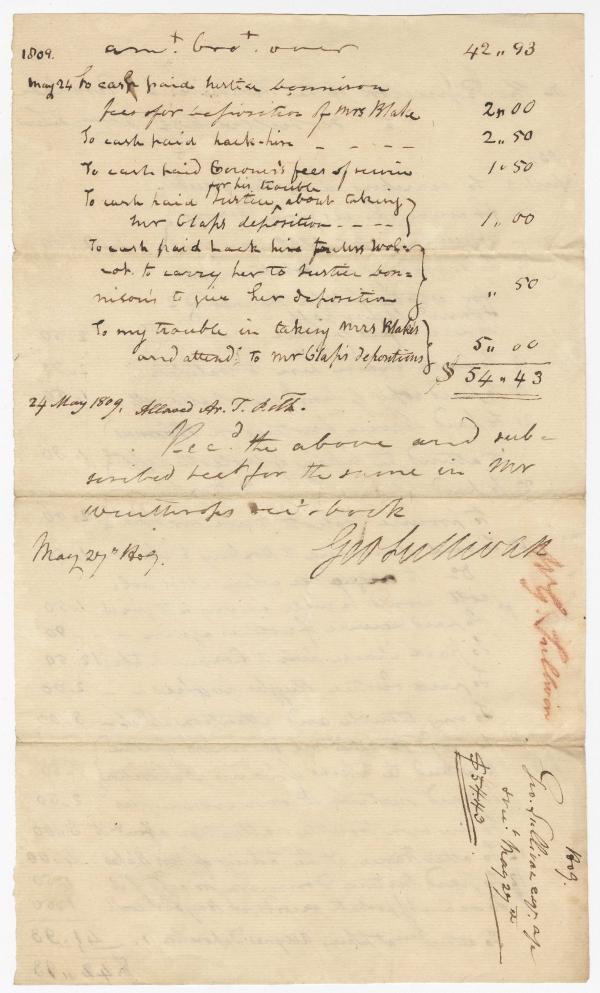 1809. amt. brot. over 42 „ 93
May 24 To cash paid Justice Bennison
fees for deposition of Mrs Blake 2 „ 00
To cash paid hack-hire - - - - 2 „ 50
To cash paid Coroner's fees of 1 „ 50
for his trouble
To cash paid Justice ^ about taking
Mr Clap's deposition - - - - 1 „ 00
To cash paid hack hire for Mrs Wol-
cot. to carry her to Justice Ben-
nison's to give her deposition „ 50
To my trouble in taking Mrs Blake's
and attendg. to Mr Clap's depositions 5 „ 00
$ 54 „ 43
24 May 1809. Allowed
Recd. the above and sub-
scribed rect for the same in Mr
Winthrops rect. book
May 27th 1809. Geo Sullivan
G. Sullivan
1809.
Geo. Sullivan esqr.
May 27th
$54.43